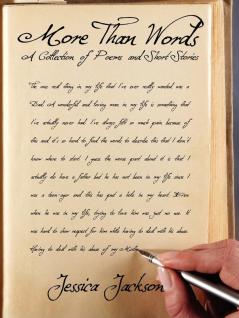 More Than Words
A Collection of Poems and Short Stories
The one real thing in my life that I've ever really wanted was a
Dad. A wonderful and loving man in my life is something that
I've actually never had. I've always felt so much pain because of
this and it's so hard to find the words to describe this that I don't
know where to start. I guess the worst part about it is that I
actually do have a father but he has not been in my life since I
was a teen-ager and this has put a hole in my heart. Even
when he was in my life, trying to love him was just no use. It
was hard to show respect for him while having to deal with his abuse.
Having to deal with his abuse of my Mother
Jessica Jackson